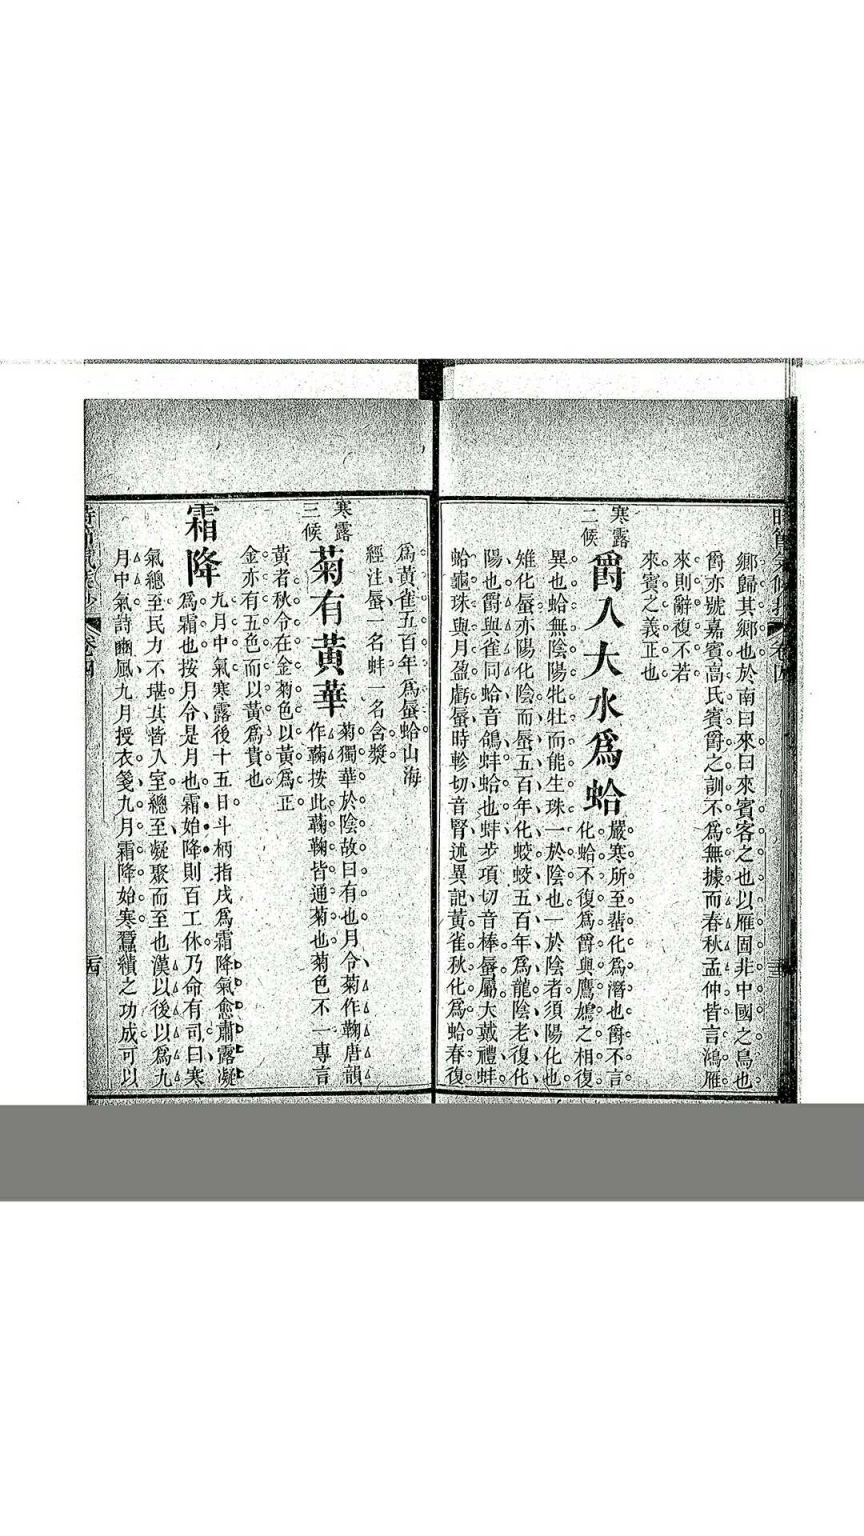 鄉歸其鄉也於南曰來曰來賓客之也以雁固非中國之鳥也
爵亦號嘉賓高氏賓爵之訓不爲無據而春秋孟仲皆言鴻雁
來則辭複不若
來賓之義正也
寒露二候
爵入大水爲蛤
嚴寒所至蜚化爲潛也爵不言
化蛤不復爲爵與鷹鳩之相復
異也蛤無陰陽牝牡而能生珠一於陰也一於陰者須陽化也
雉化蜃亦陽化陰而蜃五百年化蛟蛟五百年爲龍陰老復化
陽也爵與雀同蛤音鴿蚌蛤也蚌步項切音棒蜃屬大戴禮蚌
蛤龜珠與月盈虧蜃時軫切音腎述異記黃雀秋化爲蛤春復
爲黃雀五百年爲蜃蛤山海
經注蜃一名蚌一名含漿
寒露三候
菊有黃華
菊獨華於陰故曰有也月令菊作鞠唐韻
作蘜按此蘜鞠皆通菊也菊色不一專言
黃者秋令在金菊色以黃爲正
金亦有五色而以黃爲貴也
霜降
九月中氣寒露後十五日斗柄指戌爲霜降氣愈肅露凝
爲霜也按月令是月也霜始降則百工休乃命有司曰寒
氣總至民力不堪其皆入室總至凝聚而至也漢以後以爲九
月中氣詩豳風九月授衣箋九月霜降始寒蠶績之功成可以
卷四